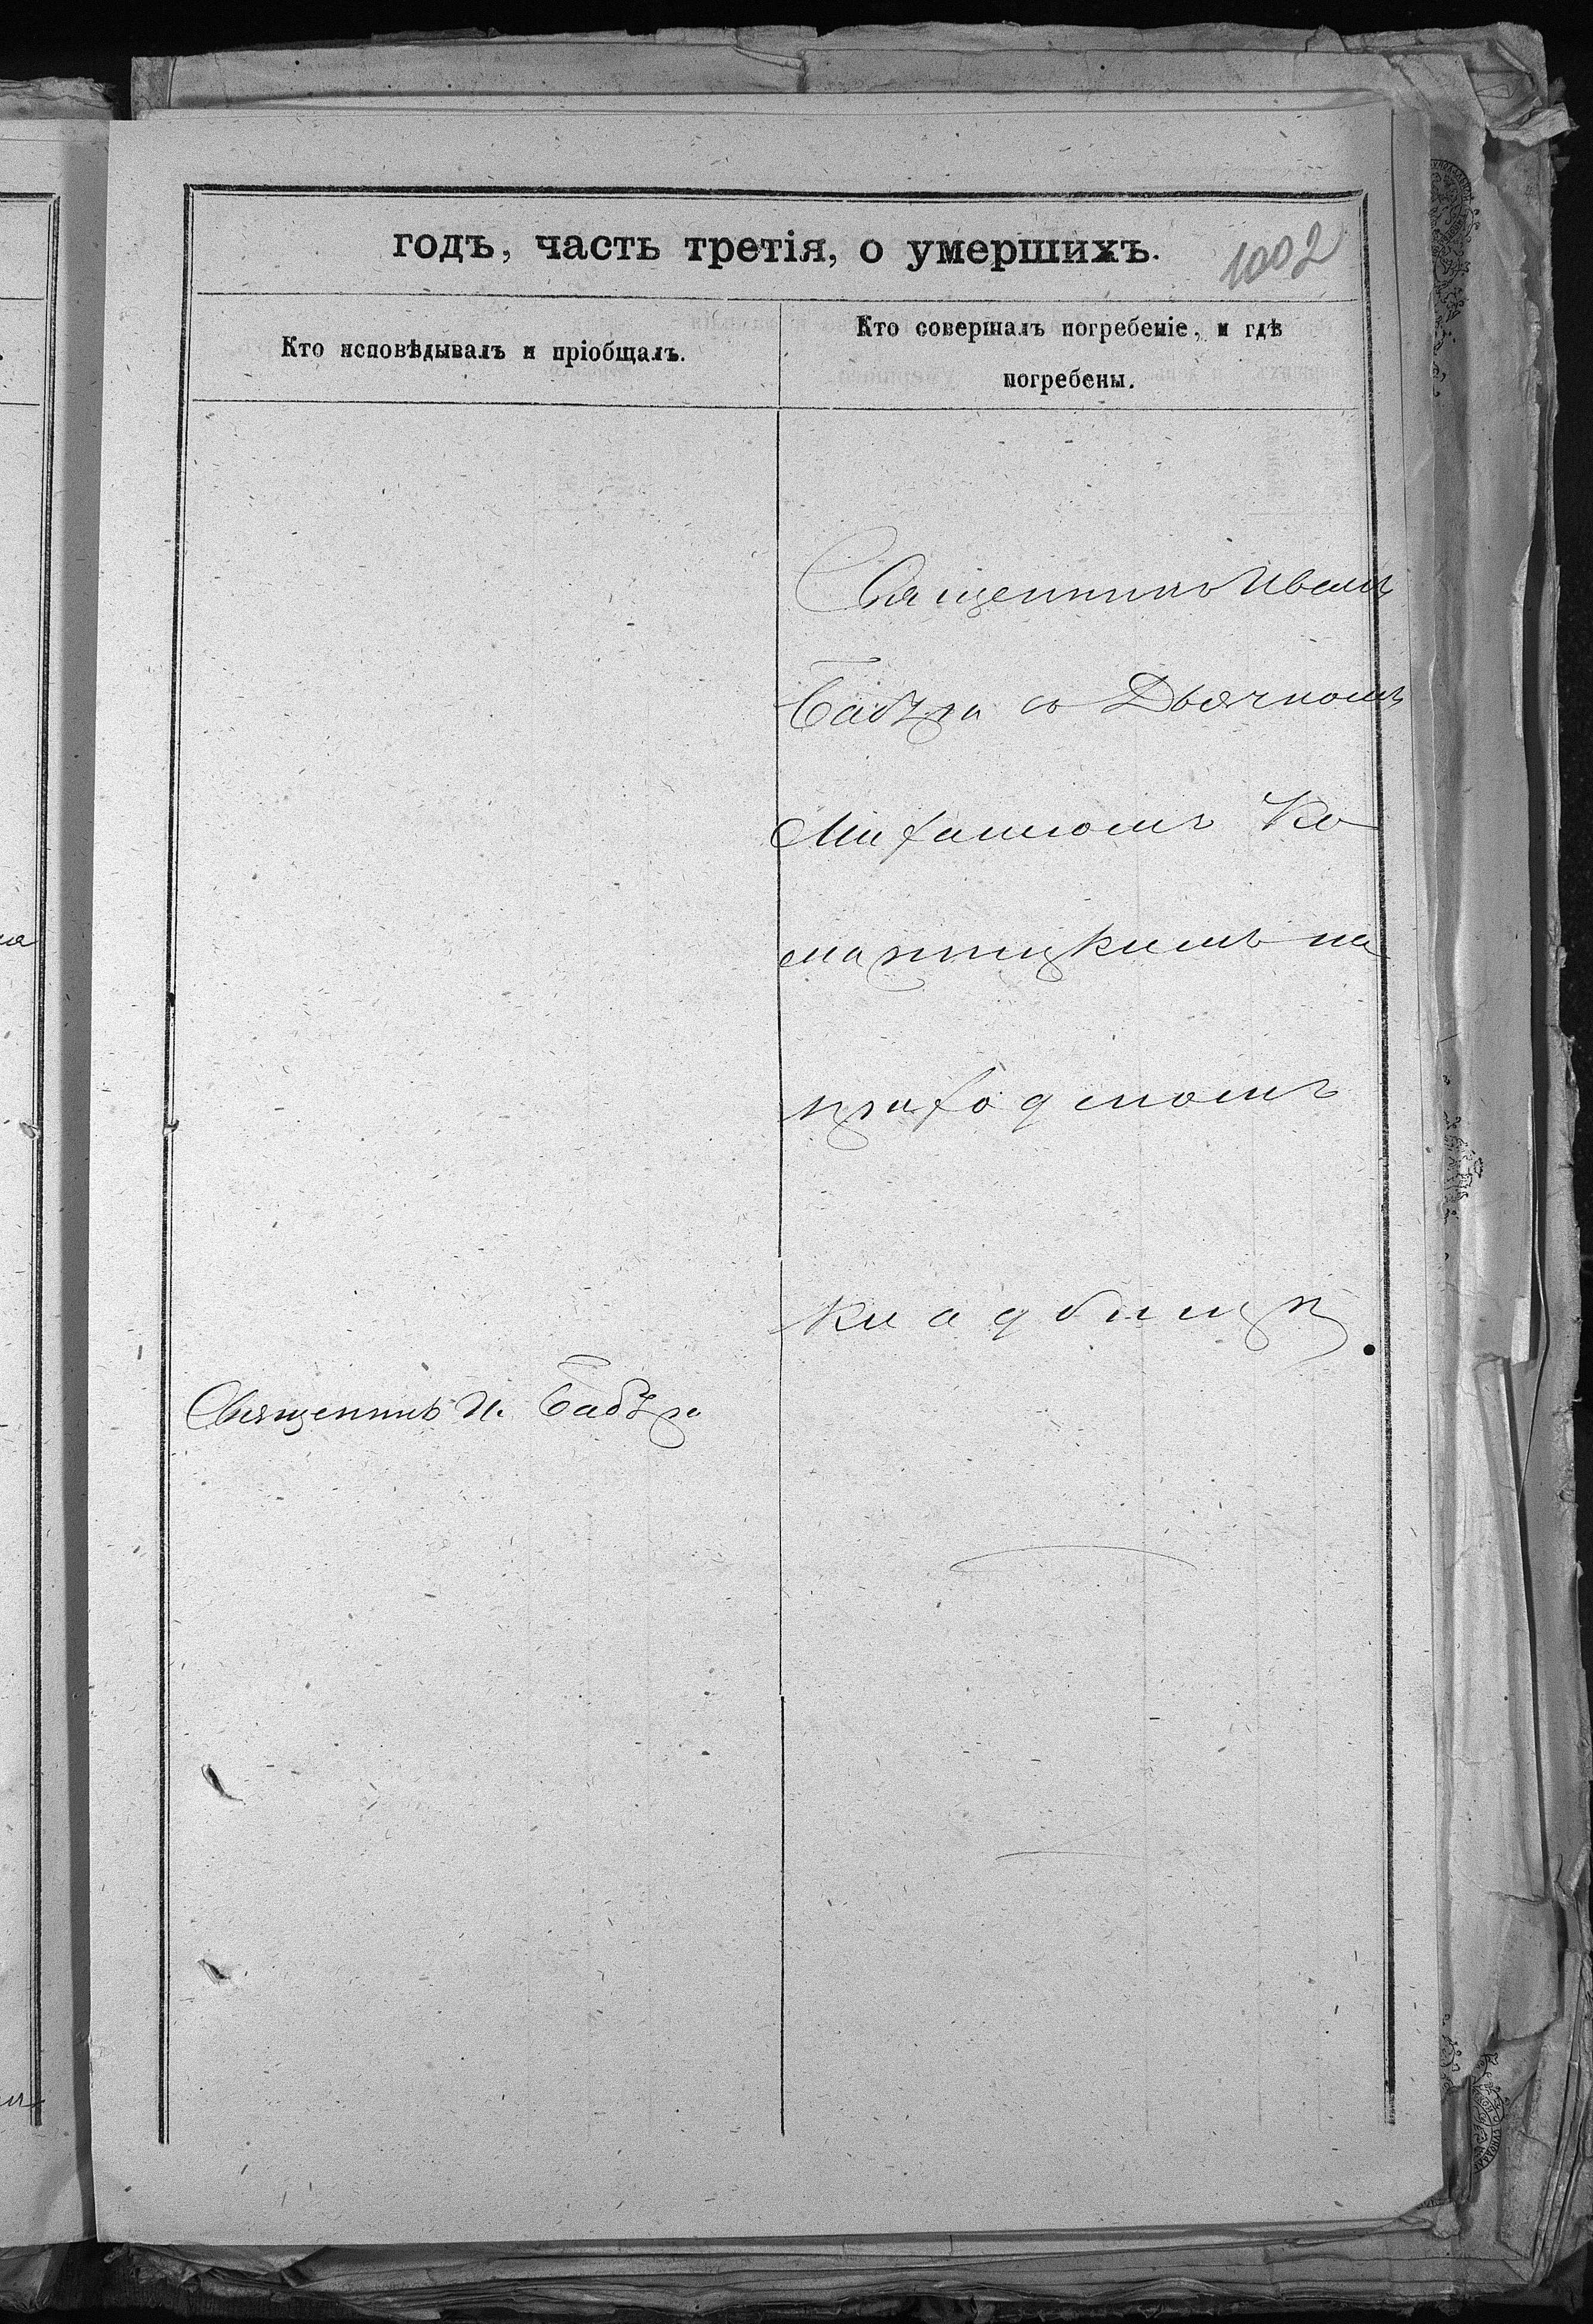 годъ, часть третія, о умершихъ.
1002
Кто исповѣдывалъ и пріобщалъ.
Кто совершалъ погребеніе, и гдѣ
погребены.
Священникъ Иванъ
Бабура съ Дьячкомъ
Михаиломъ Ко
марницкимъ на
приходскомъ
кладбищѣ.
Священникъ И. Бабура